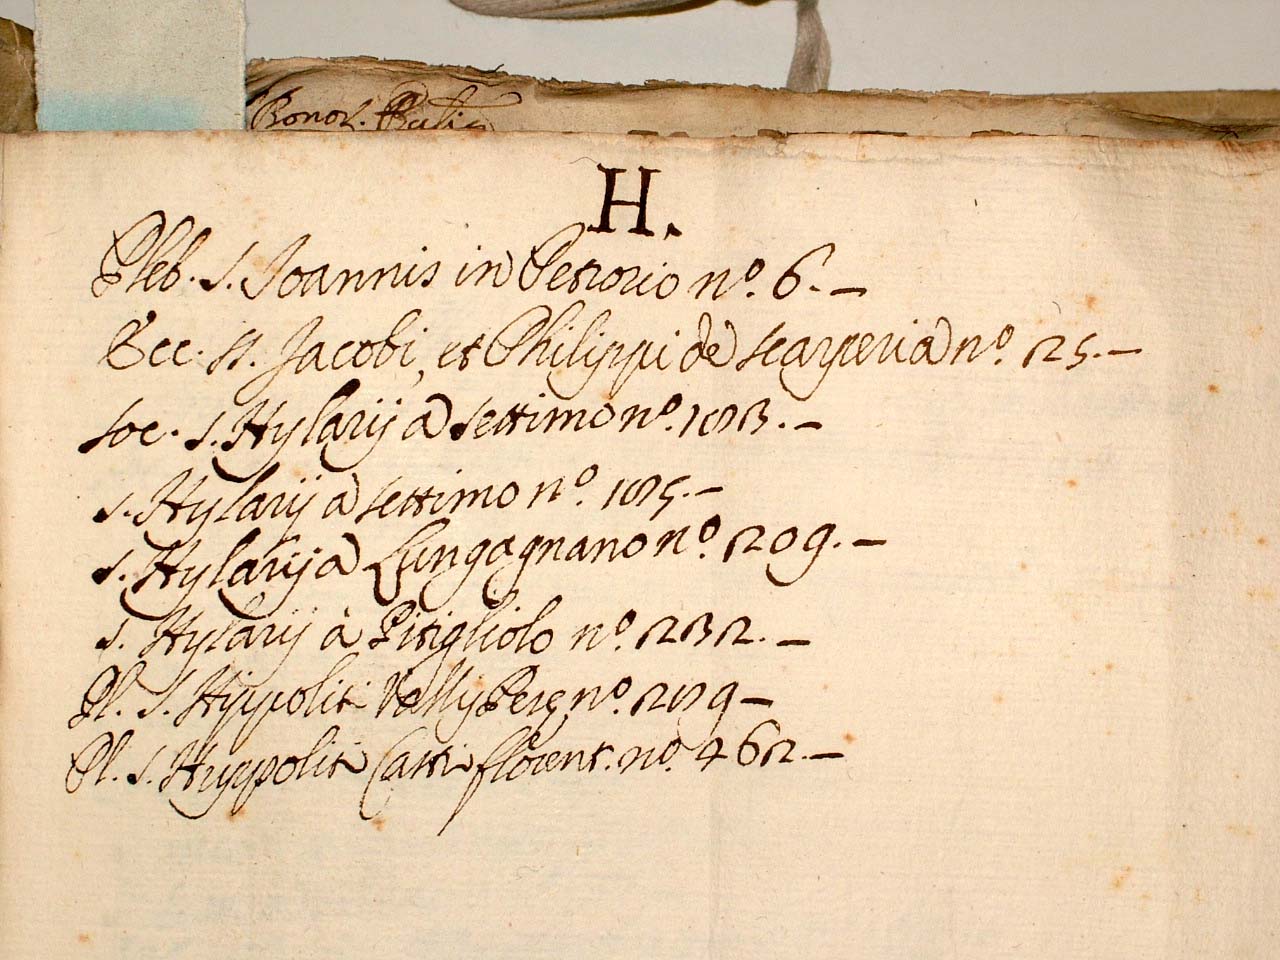 Bonor.
H.
Pleb. S. Joannis in Petrorio nº. 6. —
Ecc. SS. Jacobi, et Philippi de Scarperia nº. 25. —
Soc. S. Hylarij a Settimo nº.
S. Hylarij a Settimo nº.
S. Hylarij a Lungagnano nº. 209. —
S. Hylarij à Pitigliolo nº. 232. —
Pl. S. Hyppoliti Vallis nº.
Pl. S. Hyppoliti Castri florent. nº. 462. —